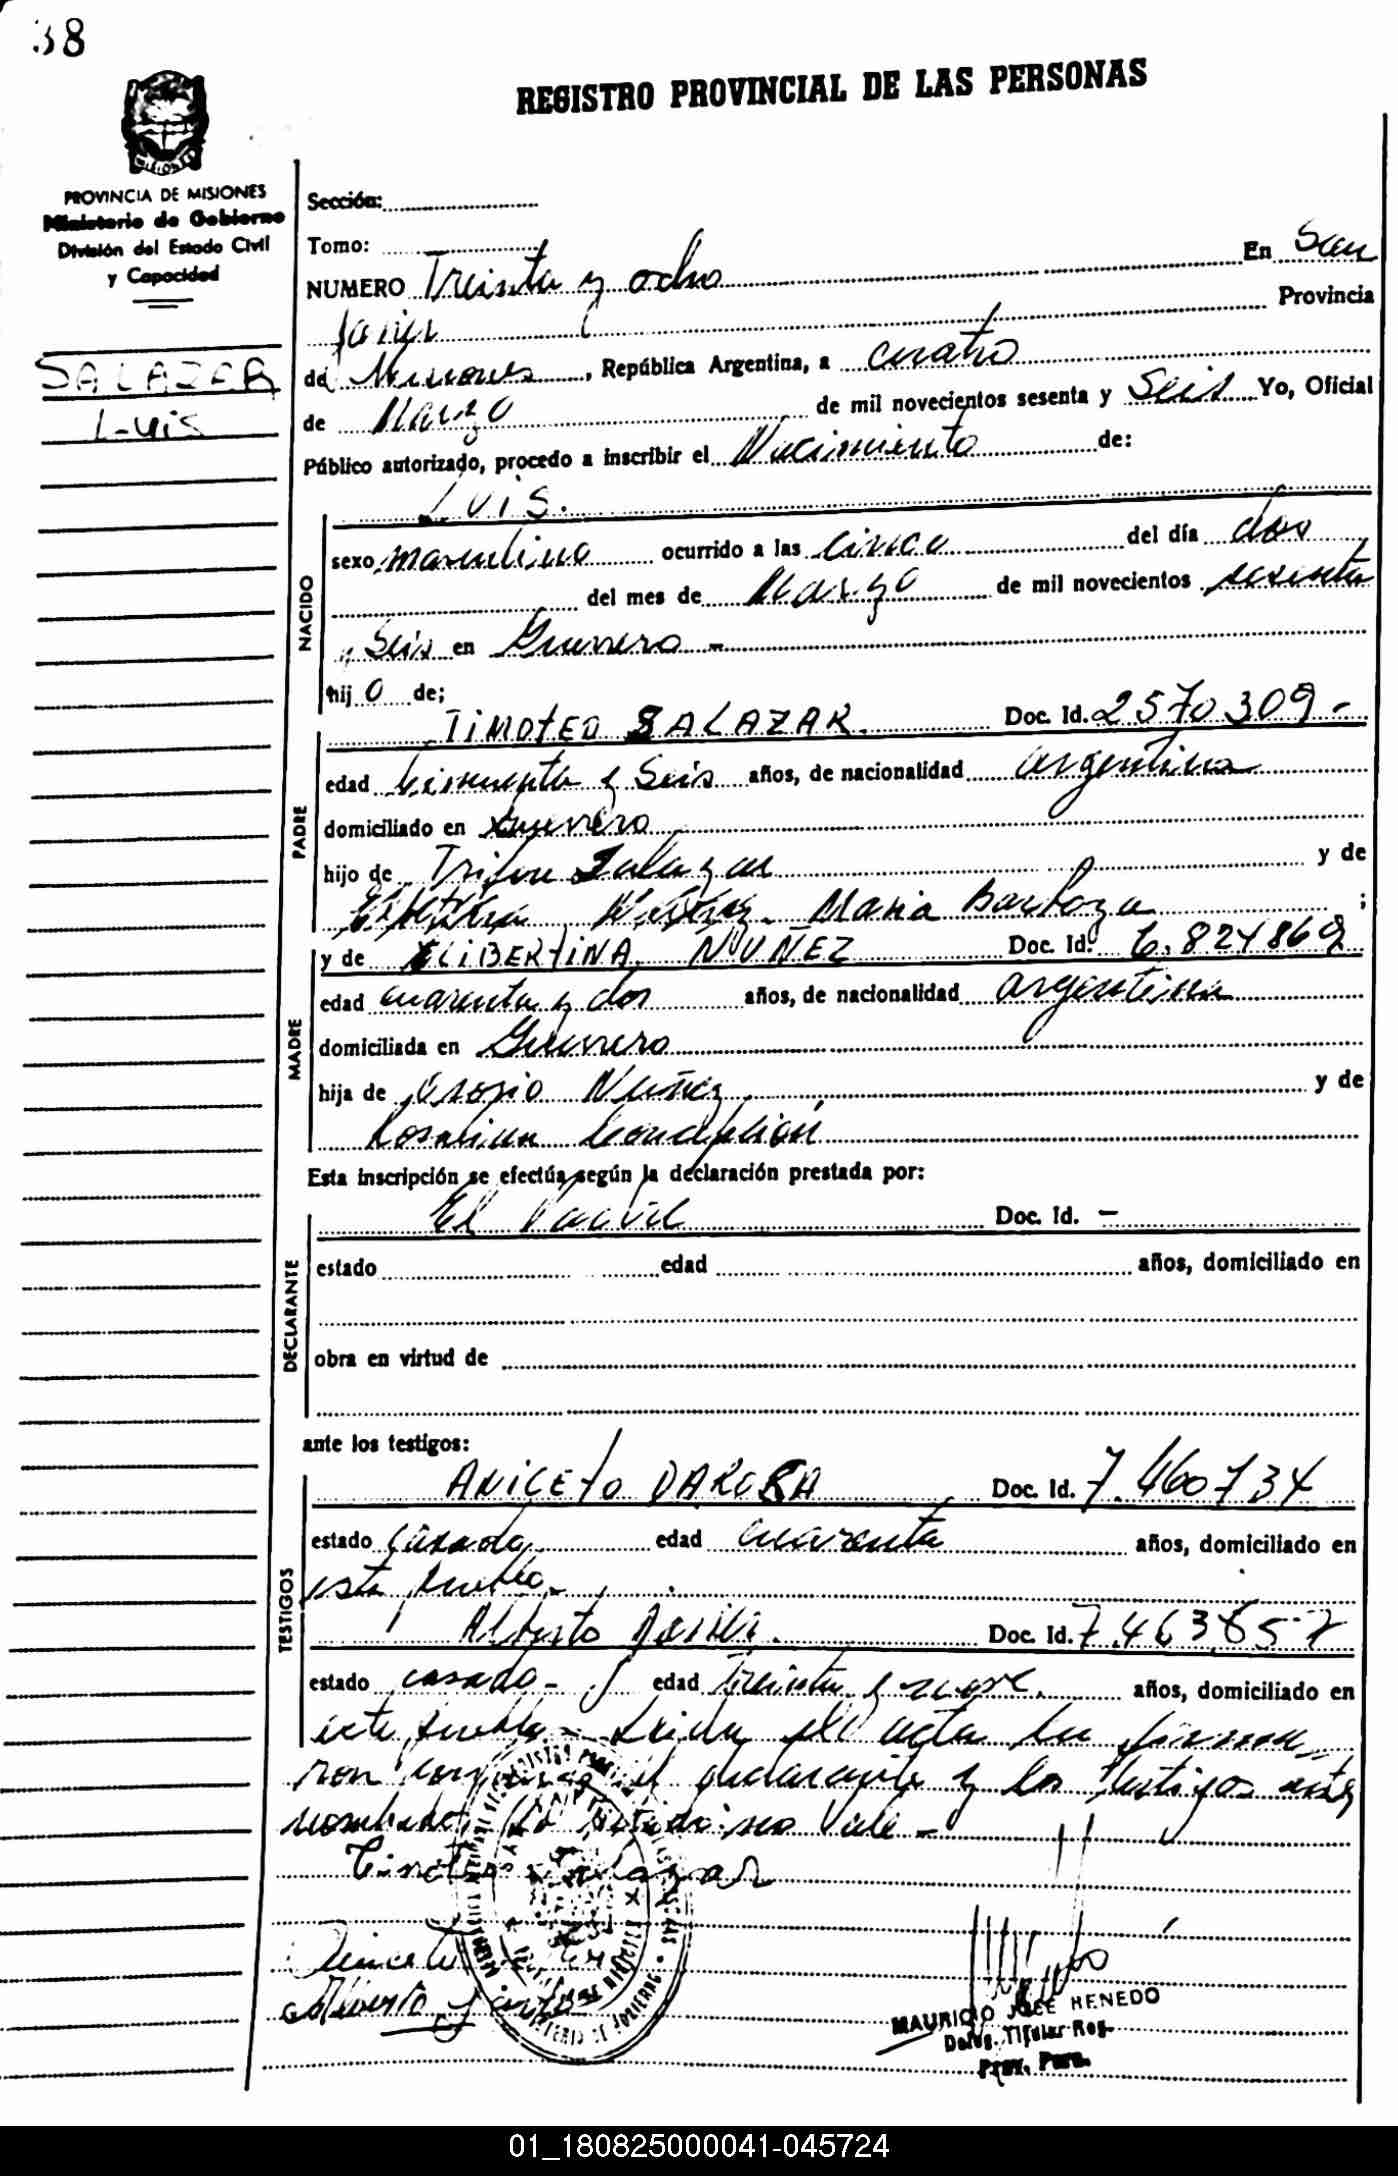 38
REGISTRO PROVINCIAL DE LAS PERSONAS
MISIONES
PROVINCIA DE MISIONES
Ministerio de Gobierno
División del Estado Civil
y Capacidad
SALAZAR
LUIS
Sección:
Tomo:
NUMERO Treinta y ocho En San
Javier Provincia
de Misiones, República Argentina, a cuatro
de Marzo de mil novecientos sesenta y Seis Yo, Oficial
Público autorizado, procedo a inscribir el Nacimiento de:
LUIS.
NACIDO
sexo masculino ocurrido a las cinco del día dos
del mes de Marzo de mil novecientos sesenta
y Seis en Guerrero -
hijo de;
PADRE
TIMOTEO SALAZAR. Doc. Id. 2570309-
edad Cincuenta y Seis años, de nacionalidad argentina
domiciliado en Guerrero
hijo de Trifon Salazar y de
Maria Barboza ;
MADRE
y de ELIBERTINA NUÑEZ Doc. Id. 6.824869
edad cuarenta y dos años, de nacionalidad argentina
domiciliada en Guerrero
hija de Osorio Nuñez y de
Concepción
Esta inscripción se efectúa según la declaración prestada por:
DECLARANTE
El Doc. Id. -
estado edad años, domiciliado en
obra en virtud de
ante los testigos:
TESTIGOS
ANICETO DAROSA Doc. Id. 7.460734
estado casado edad cuarenta años, domiciliado en
este pueblo.
Alberto Doc. Id. 7.463657
estado casado- edad treinta y nueve años, domiciliado en
este pueblo - Leida el acta la firma
ron conmigo el declarante y los testigos antes
nombrados. Lo no Vale -
Timoteo Salazar
Aniceto
Alberto
MAURICIO JOSE HENEDO
Deleg. Titular Reg.
Prov. Pers.
01_180825000041-045724